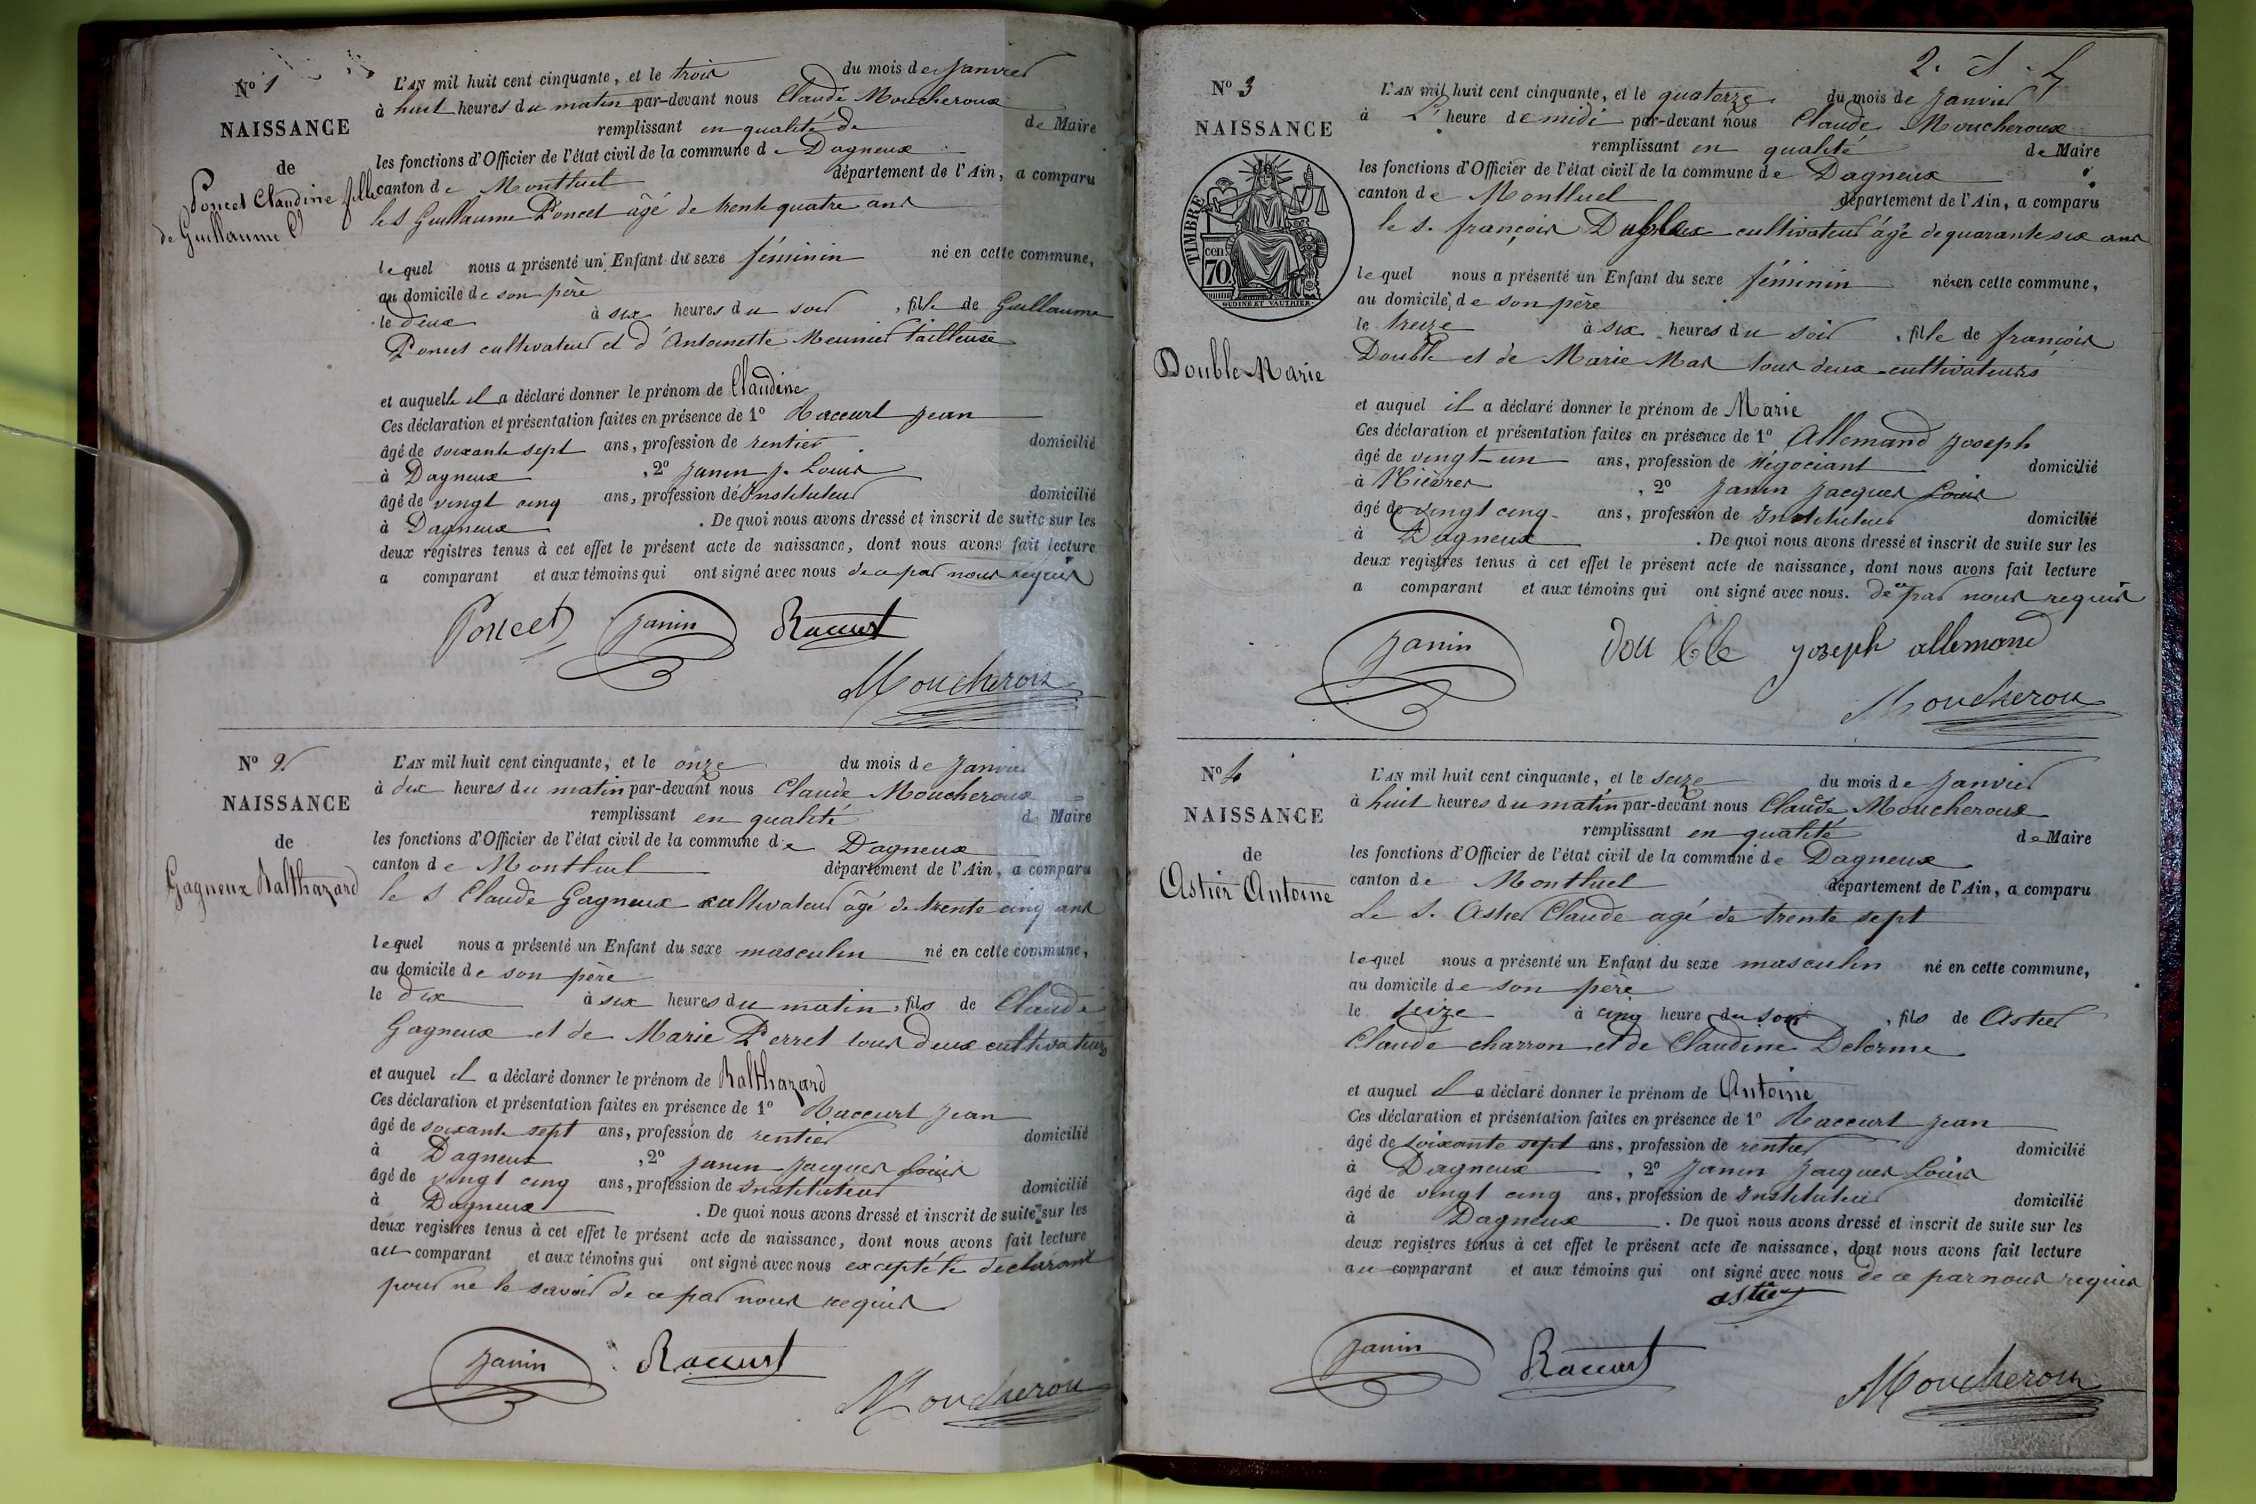 No 1
NAISSANCE
de
Poncet Claudine fille
de Guillaume
L'AN mil huit cent cinquante, et le trois du mois de Janvier
à huit heures du matin par-devant nous Claude Moucheroux
remplissant en qualité de de Maire
les fonctions d'Officier de l'état civil de la commune de Dagneux
canton de Montluel département de l'Ain, a comparu
le S Guillaume Poncet âgé de trente quatre ans
lequel nous a présenté un Enfant du sexe féminin né en cette commune,
au domicile de son père
le deux à six heures du soir, fille de Guillaume
Poncet cultivateur et d'Antoinette Meunier tailleuse
et auquelle il a déclaré donner le prénom de Claudine
Ces déclaration et présentation faites en présence de 1º Raccurt Jean
âgé de soixante sept ans, profession de rentier domicilié
à Dagneux, 2º Janin J. Louis
âgé de vingt cinq ans, profession de Instituteur domicilié
à Dagneux. De quoi nous avons dressé et inscrit de suite sur les
deux registres tenus à cet effet le présent acte de naissance, dont nous avons fait lecture
a comparant et aux témoins qui ont signé avec nous de ce par nous requis
Poncet Janin Raccurt
Moucheroux
No 2
NAISSANCE
de
Gagneux Balthazard
L'AN mil huit cent cinquante, et le onze du mois de Janvier
à dix heures du matin par-devant nous Claude Moucheroux
remplissant en qualité de Maire
les fonctions d'Officier de l'état civil de la commune de Dagneux
canton de Montluel département de l'Ain, a comparu
le S Claude Gagneux cultivateur âgé de trente cinq ans
lequel nous a présenté un Enfant du sexe masculin né en cette commune,
au domicile de son père
le dix à six heures du matin, fils de Claude
Gagneux et de Marie Perret tous deux cultivateurs
et auquel il a déclaré donner le prénom de Balthazard
Ces déclaration et présentation faites en présence de 1º Raccurt Jean
âgé de soixante sept ans, profession de rentier domicilié
à Dagneux, 2º Janin Jacques Louis
âgé de vingt cinq ans, profession de Instituteur domicilié
à Dagneux. De quoi nous avons dressé et inscrit de suite sur les
deux registres tenus à cet effet le présent acte de naissance, dont nous avons fait lecture
au comparant et aux témoins qui ont signé avec nous excepté le déclarant
pour ne le savoir de ce par nous requis
Janin Raccurt
Moucherou
No 3
NAISSANCE
TIMBRE
70 cen.
OUDINE ET VAUTRIER.
Double Marie
L'AN mil huit cent cinquante, et le quatorze du mois de Janvier
à l' heure de midi par-devant nous Claude Moucheroux
remplissant en qualité de Maire
les fonctions d'Officier de l'état civil de la commune de Dagneux
canton de Montluel département de l'Ain, a comparu
le s. françois cultivateur âgé de quarante six ans
lequel nous a présenté un Enfant du sexe féminin né en cette commune,
au domicile, de son père
le treize à six heures du soir, fille de françois
Double et de Marie Mas tous deux cultivateurs
et auquel il a déclaré donner le prénom de Marie
Ces déclaration et présentation faites en présence de 1º Allemand Joseph
âgé de vingt-un ans, profession de Négociant domicilié
à Nièvres, 2º Janin Jacques Louis
âgé de vingt cinq ans, profession de Instituteur domicilié
à Dagneux. De quoi nous avons dressé et inscrit de suite sur les
deux registres tenus à cet effet le présent acte de naissance, dont nous avons fait lecture
a comparant et aux témoins qui ont signé avec nous. de ce par nous requis
Janin Double joseph allemand
Moucherou
No 4
NAISSANCE
de
Astier Antoine
L'AN mil huit cent cinquante, et le seize du mois de Janvier
à huit heures du matin par-devant nous Claude Moucheroux
remplissant en qualité de Maire
les fonctions d'Officier de l'état civil de la commune de Dagneux
canton de Montluel département de l'Ain, a comparu
Le S. Astier Claude agé de trente sept
lequel nous a présenté un Enfant du sexe masculin né en cette commune,
au domicile de son père
le seize à cinq heure du soir, fils de Astier
Claude charron et de Claudine Delorme
et auquel il a déclaré donner le prénom de Antoine
Ces déclaration et présentation faites en présence de 1º Raccurt Jean
âgé de soixante sept ans, profession de rentier domicilié
à Dagneux, 2º Janin Jacques Louis
âgé de vingt cinq ans, profession de Instituteur domicilié
à Dagneux. De quoi nous avons dressé et inscrit de suite sur les
deux registres tenus à cet effet le présent acte de naissance, dont nous avons fait lecture
au comparant et aux témoins qui ont signé avec nous de ce par nous requis
astier
Janin Raccurt
Moucherou